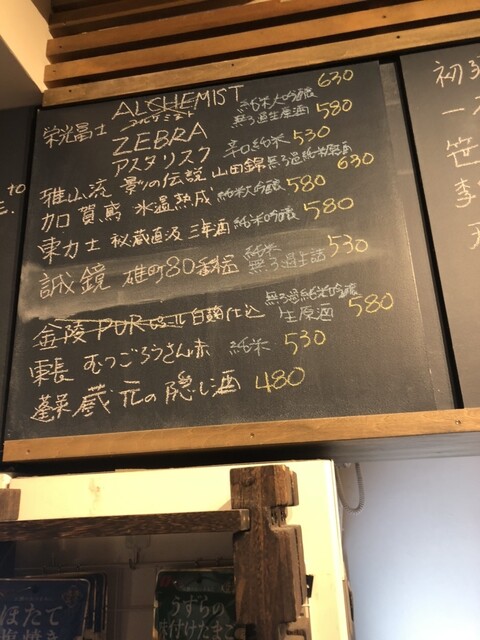 栄光冨士 ALCHEMIST 純米大吟醸 630
アルケミスト 無ろ過生原酒
ZEBRA 580
アスタリスク 辛口純米 530
雅山流 影の伝説 山田錦 無ろ過純米原酒 630
加賀鳶 氷温熟成 純米大吟醸 580
東力士 秘蔵直汲 三年酒 純米吟醸 580
誠鏡 雄町80 純米 無ろ過生詰 530
金陵 白麹仕込 無ろ過純米吟醸 生原酒 580
東長 むつごろうさん赤 純米 530
蓬莱 蔵元の隠し酒 480
初
一
笹
李
to
ほたて
塩焼き
うずらの
味付けたまご